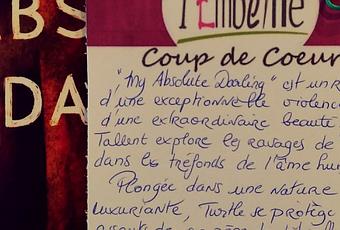 BS
DA
l'Embellie
Coup de Coeur
"My Absolute Darling" est un r
d'une exceptionnelle violenc
d'une extraordinaire beauté
Tallent explore les ravages de
dans les tréfonds de l'âme hu
Plongée dans une nature
luxuriante, Turtle se protège